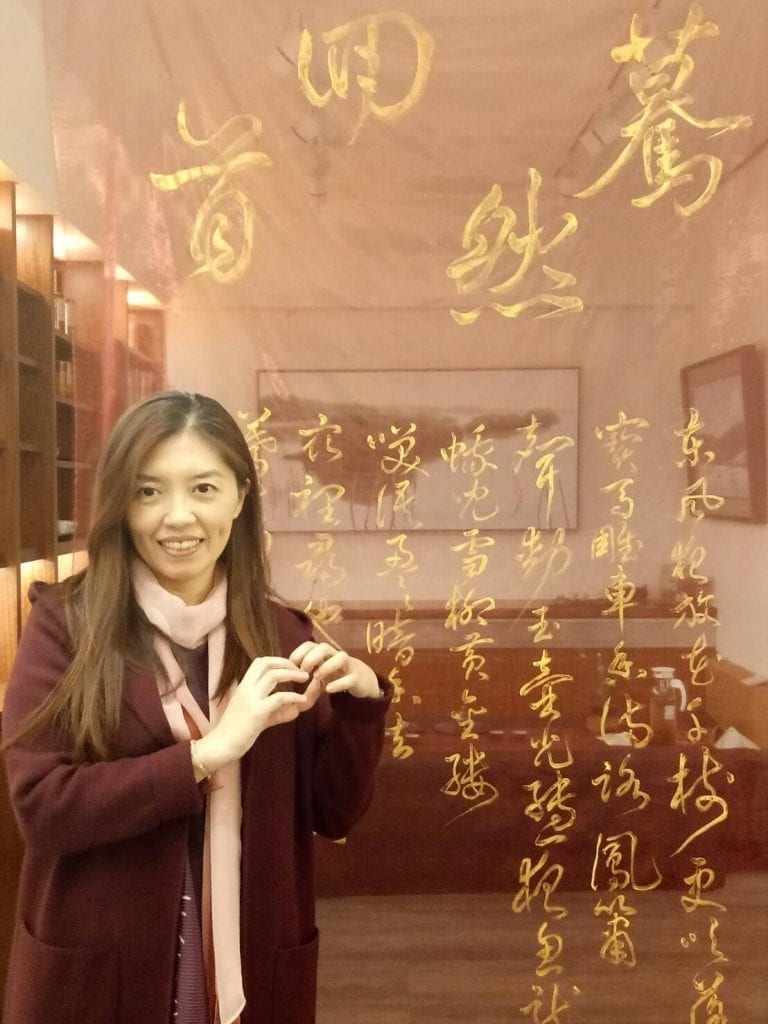 驀然回首
東風夜放花千樹更吹落
寶馬雕車香滿路鳳簫
聲動玉壺光轉一夜魚龍
蛾兒雪柳黃金縷
笑語盈盈暗香去
眾裡尋他
驀